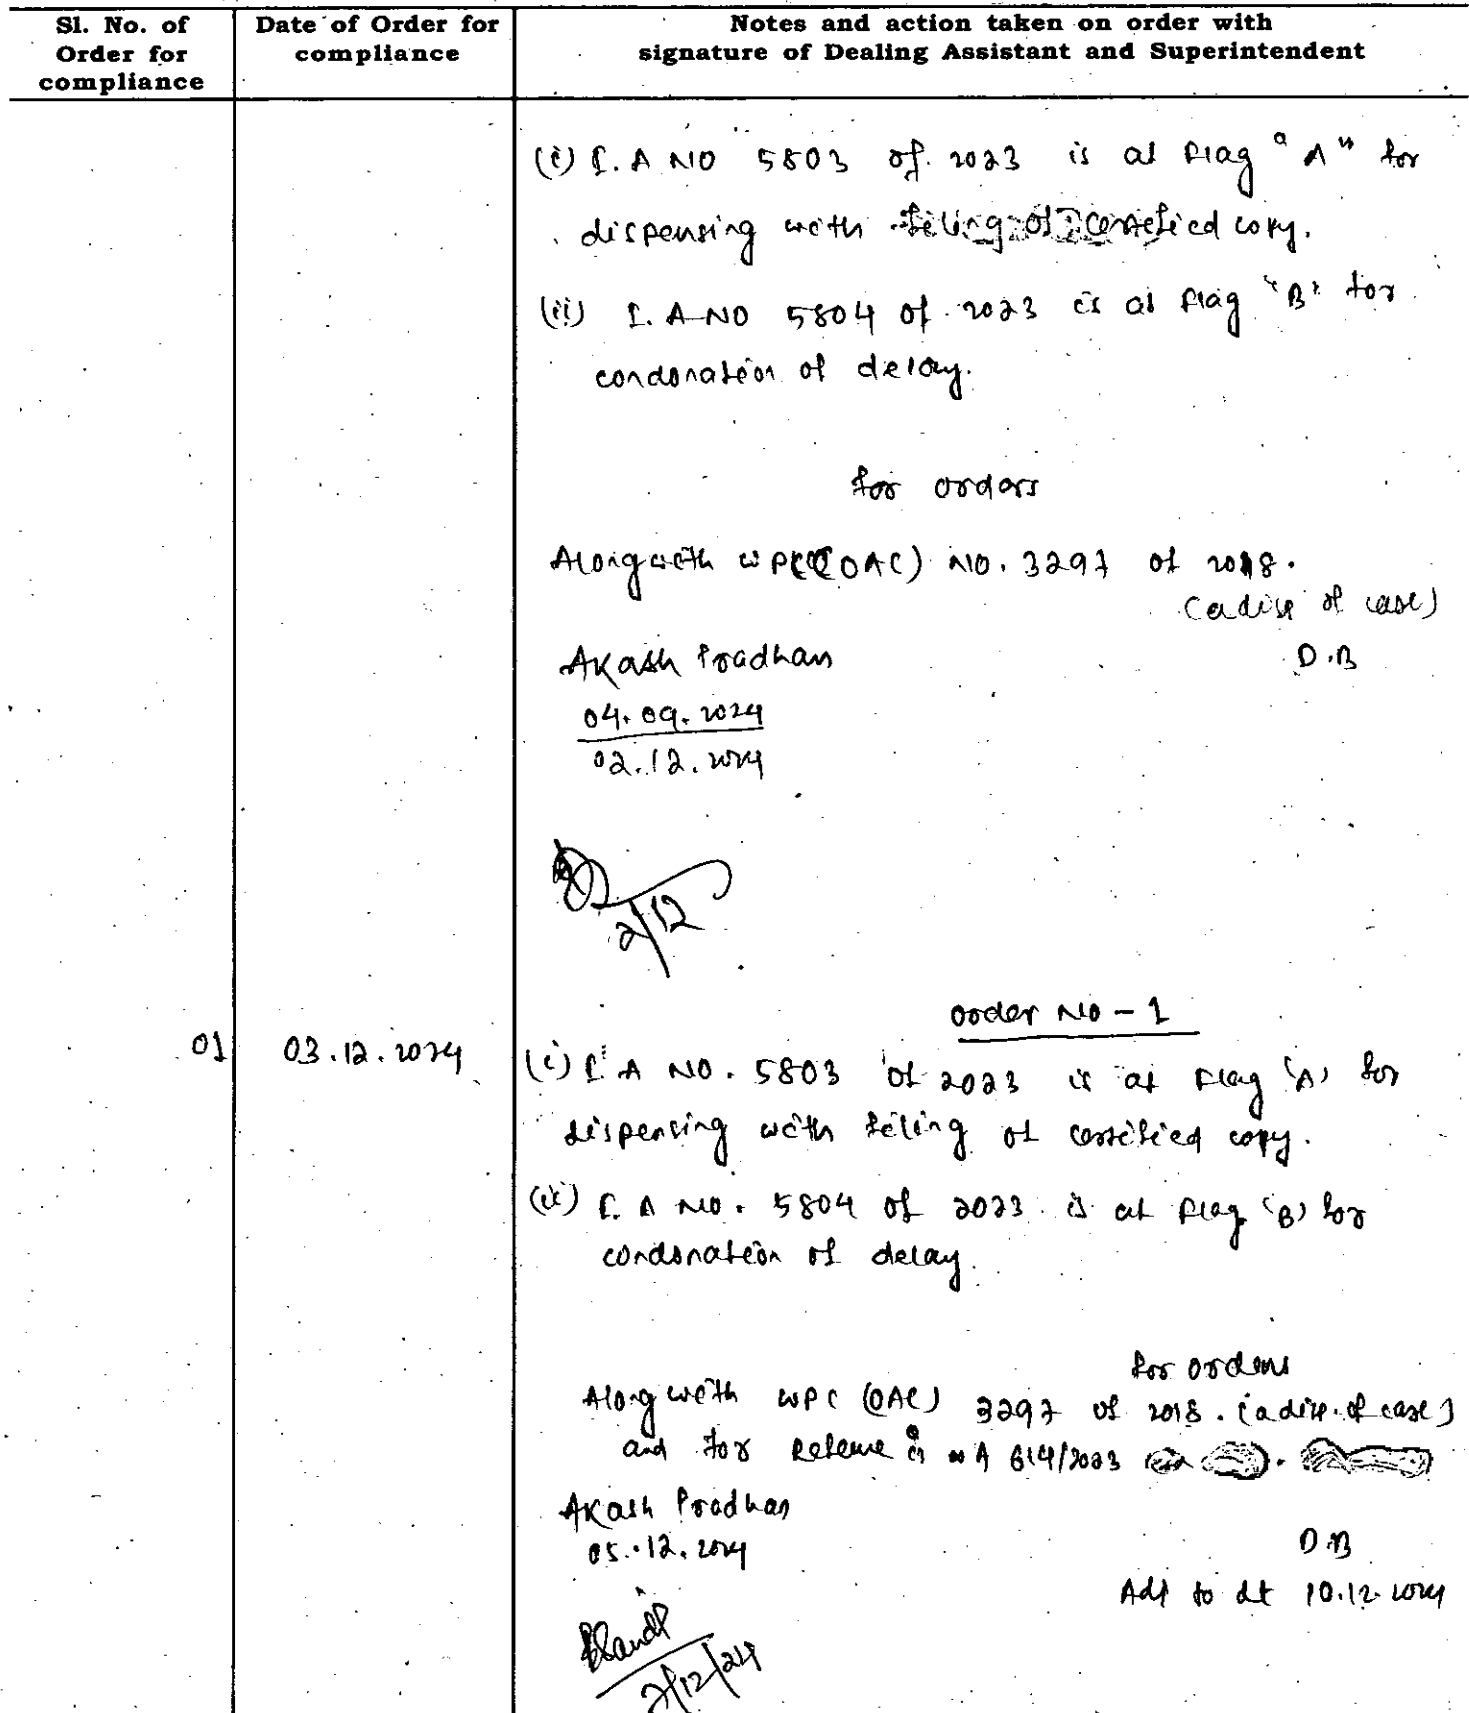 Sl. No. of Order for compliance
Date of Order for compliance
Notes and action taken on order with signature of Dealing Assistant and Superintendent
(i) I. A NO 5803 of 2023 is at flag "A" for
dispensing with filing of certified copy.
(ii) I. A NO 5804 of 2023 is at flag "B" for
condonation of delay.
for orders
Alongwith WPC(OAC) NO. 3297 of 2018.
(a disp of case)
Akash Pradhan
D.B
04.09.2024
02.12.2024
2/12
order No - 1
01
03.12.2024
(i) I. A NO. 5803 of 2023 is at flag 'A' for
dispensing with filing of certified copy.
(ii) I. A No. 5804 of 2023 is at flag 'B' for
condonation of delay.
for orders
Along with WPC (OAC) 3297 of 2018. (a disp. of case)
and for A 614/2023
Akash Pradhan
05.12.2024
D.B
Adj to dt 10.12.2024
/12/24